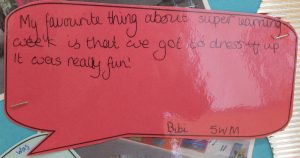 My favourite thing about super learning
week is that we got to dress up
It was really fun!
Bibi 5WM